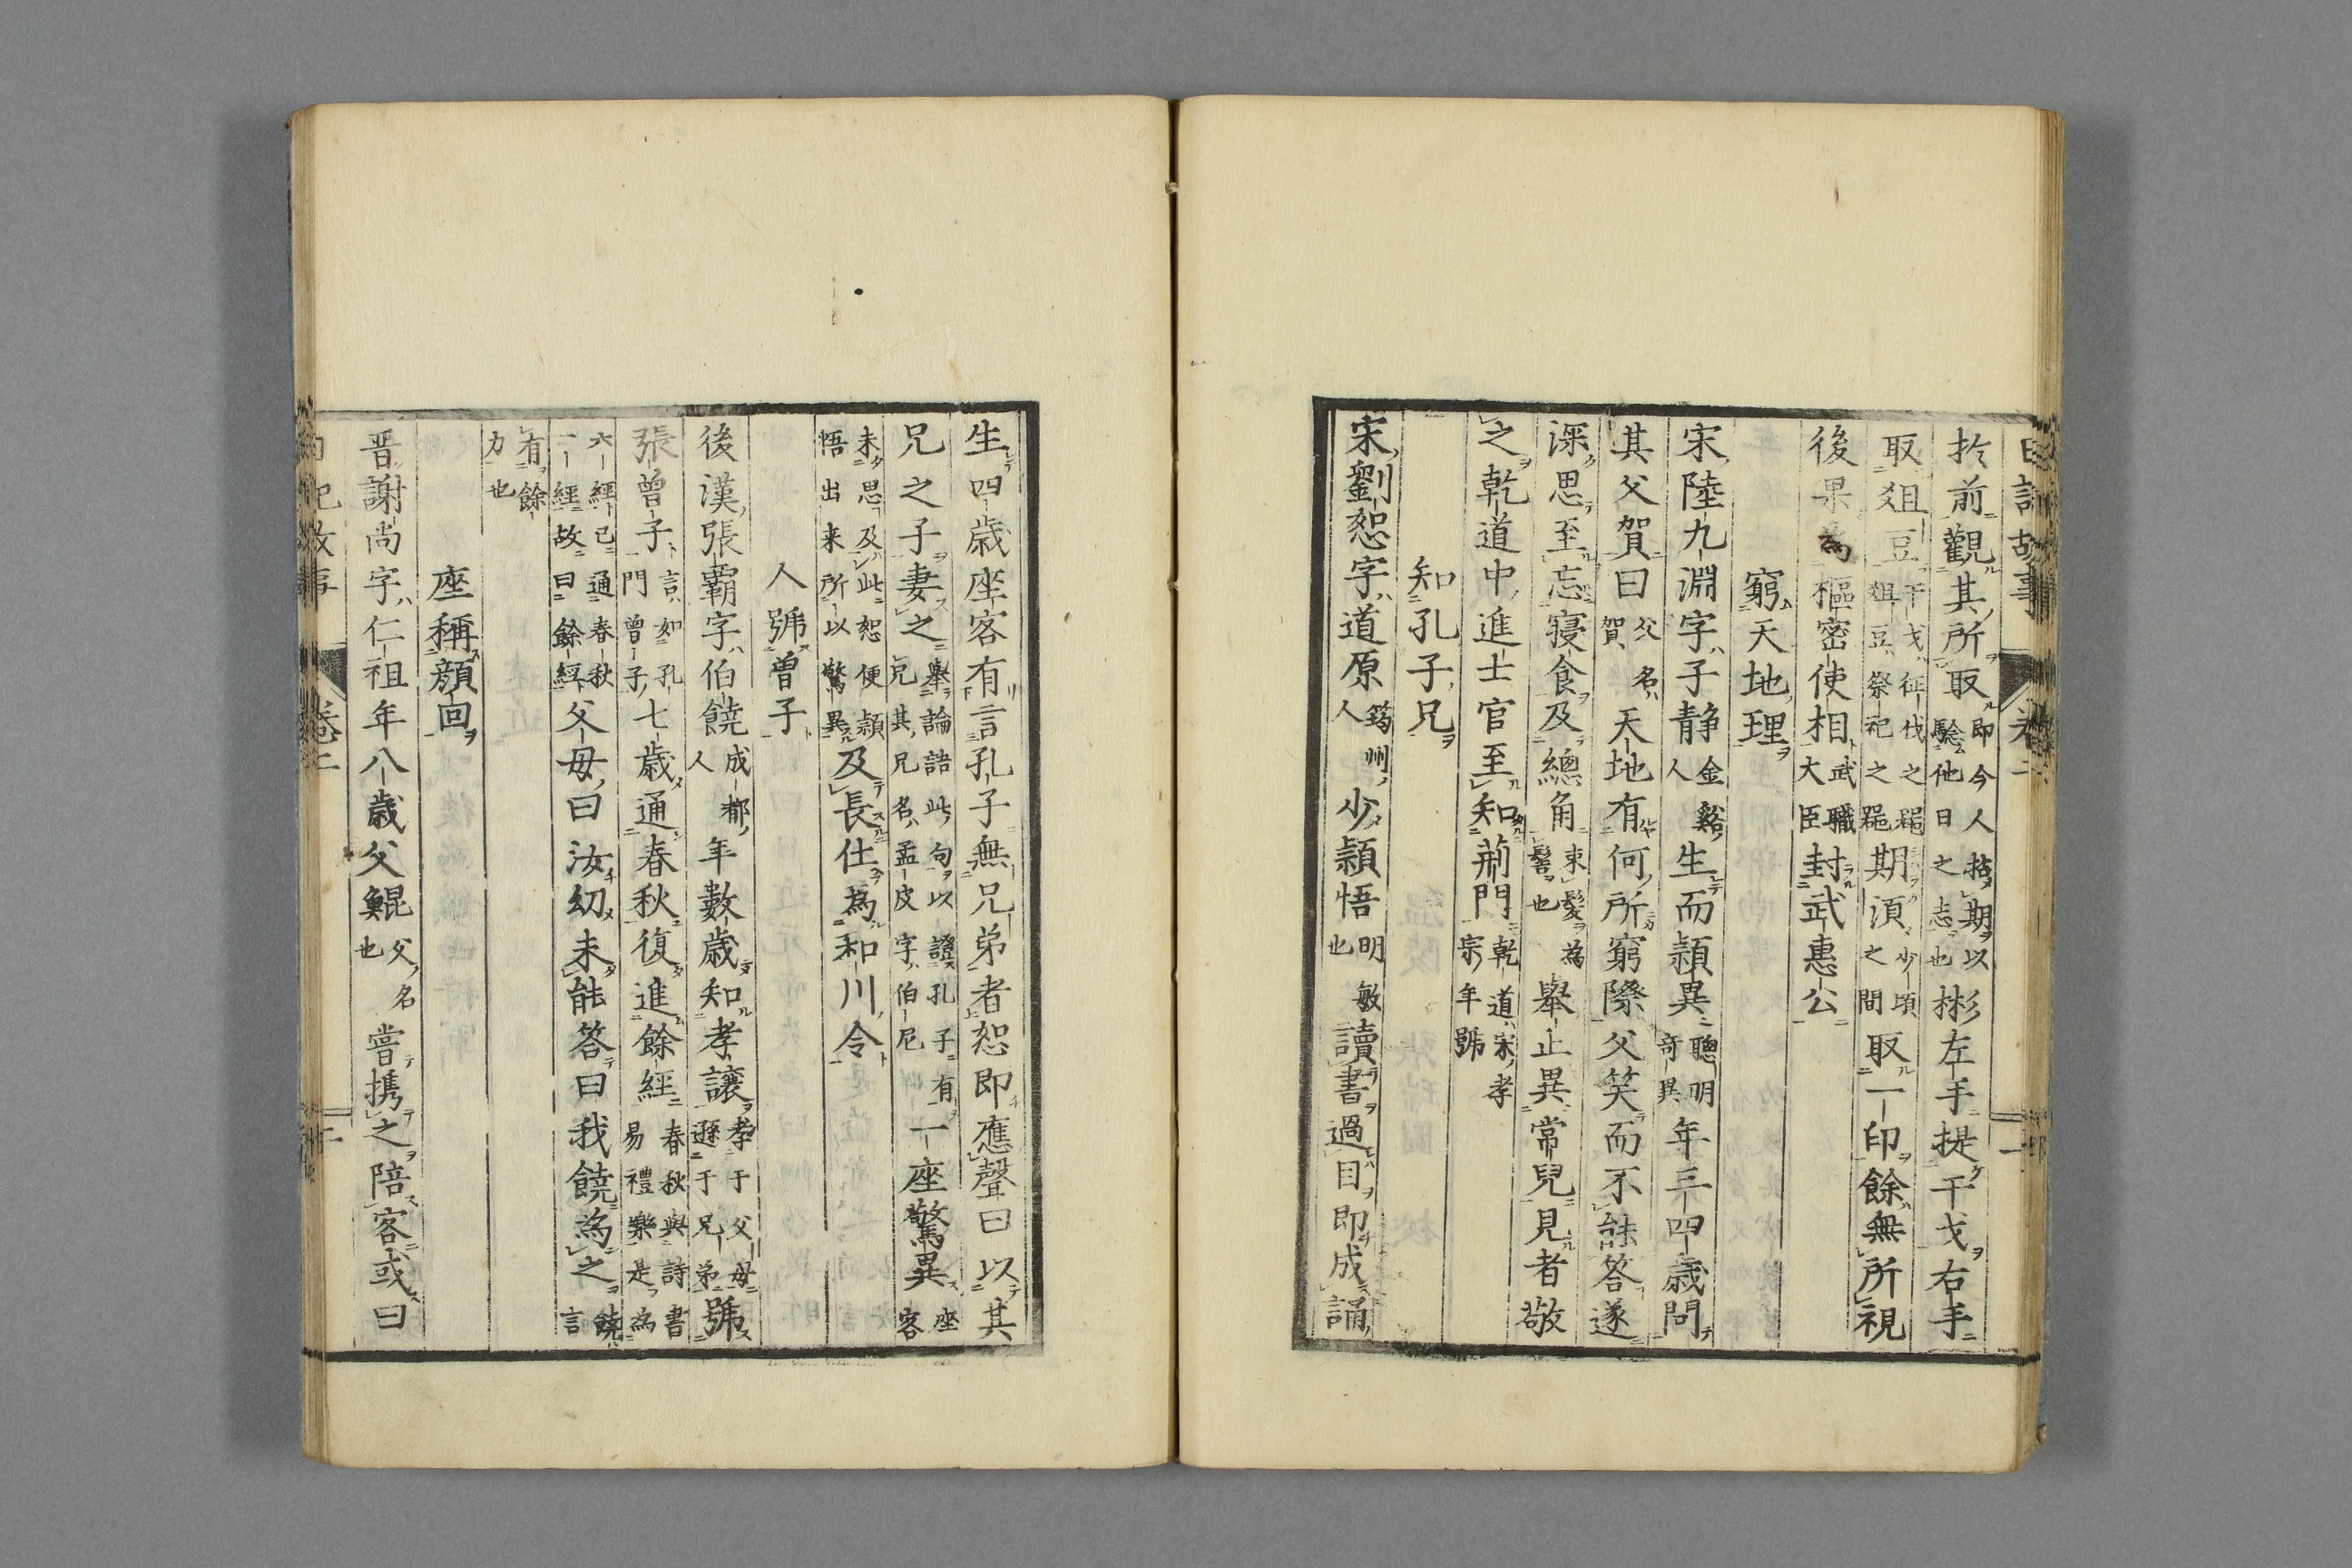 日記故事 卷二 一
扵前觀其所取即今人拈期以驗他日之志也彬左手提干戈右手
取爼豆干戈征伐之噐爼豆祭祀之噐期湏少頃之間取一印餘無所視
後果為樞密使相武職大臣封武惠公
窮天地理
宋陸九淵字子静金谿人生而穎異聰明奇異年三四歲問
其父賀曰父名賀天地有何所窮際父笑而不能答遂
深思至忘寝食及總角束髮為髻也舉止異常兒見者敬
之乾道中進士官至知荊門乾道宋孝宗年號
知孔子兄
宋劉恕字道原筠州人少穎悟明敏也讀書過目即成誦
生四歲座客有言孔子無兄弟者恕即應聲曰以其
兄之子妻之舉論語此句以證孔子有兄其兄名孟皮字伯尼一座驚異座客
未思及此恕便穎悟出来所以驚異及長仕為和川令
人號曾子
後漢張霸字伯饒成都人年數歲知孝讓孝于父母遜于兄弟號
張曾子言如孔門曾子七歲通春秋復進餘經春秋與詩書易禮樂是為
六經已通春秋一經故曰餘經父母曰汝幼未能答曰我饒為之饒言
有餘力也
座稱顔回
晋謝尚字仁祖年八歲父鯤父名也嘗携之陪客或曰
日記故事 卷二 二